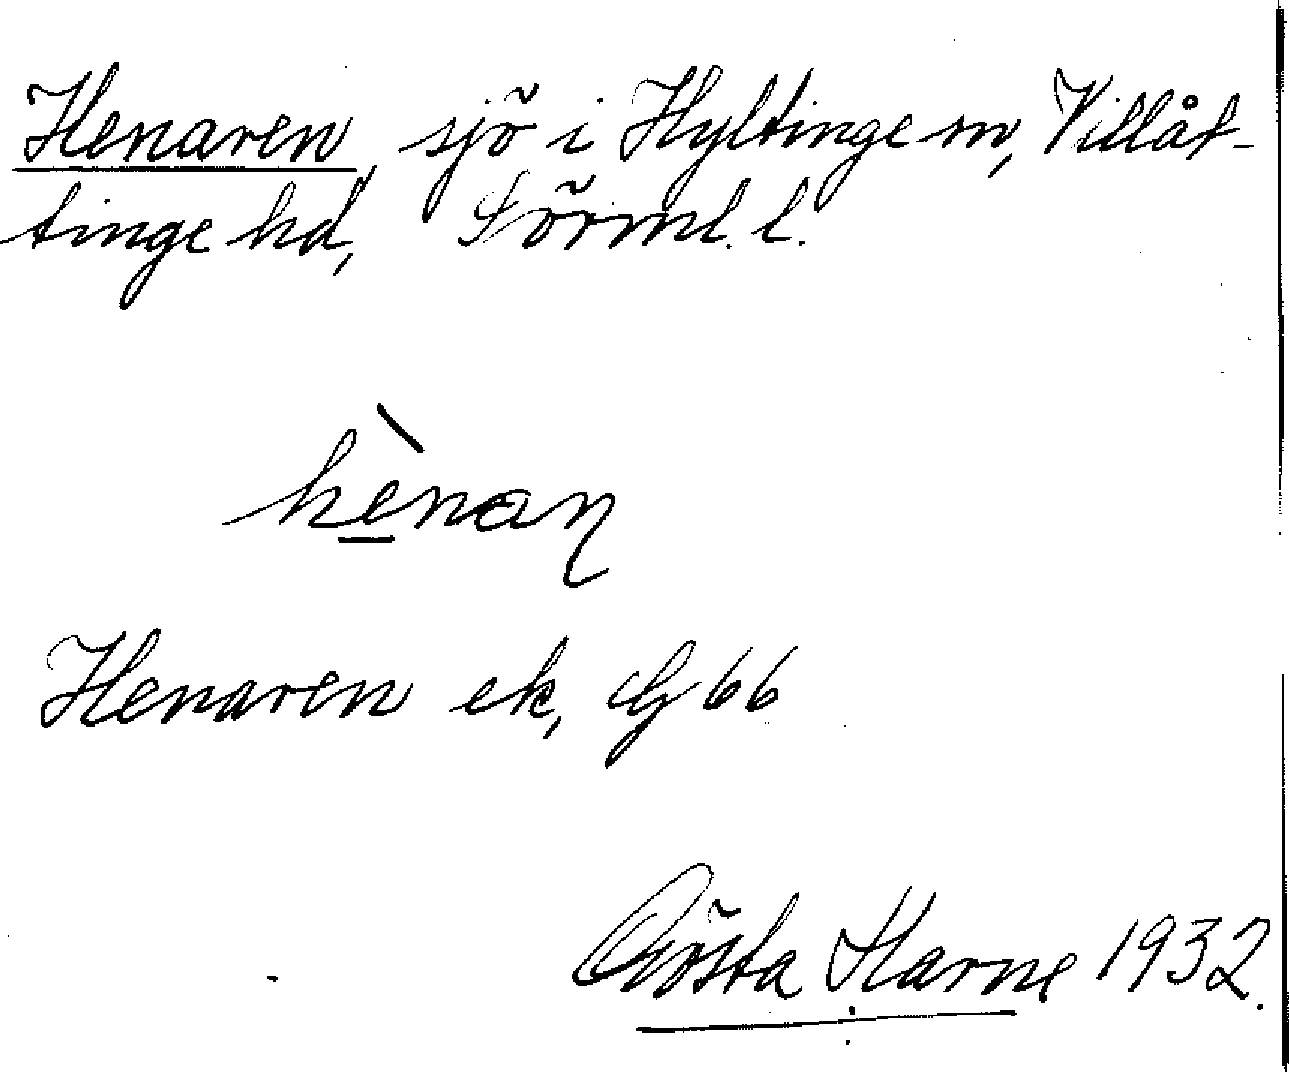 Henaren, sjö i Hyltinge sn, Villåt-
tinge hd, Sörml. l.
hènaɳ
Henaren ek, G 66
Gösta Harne 1932.